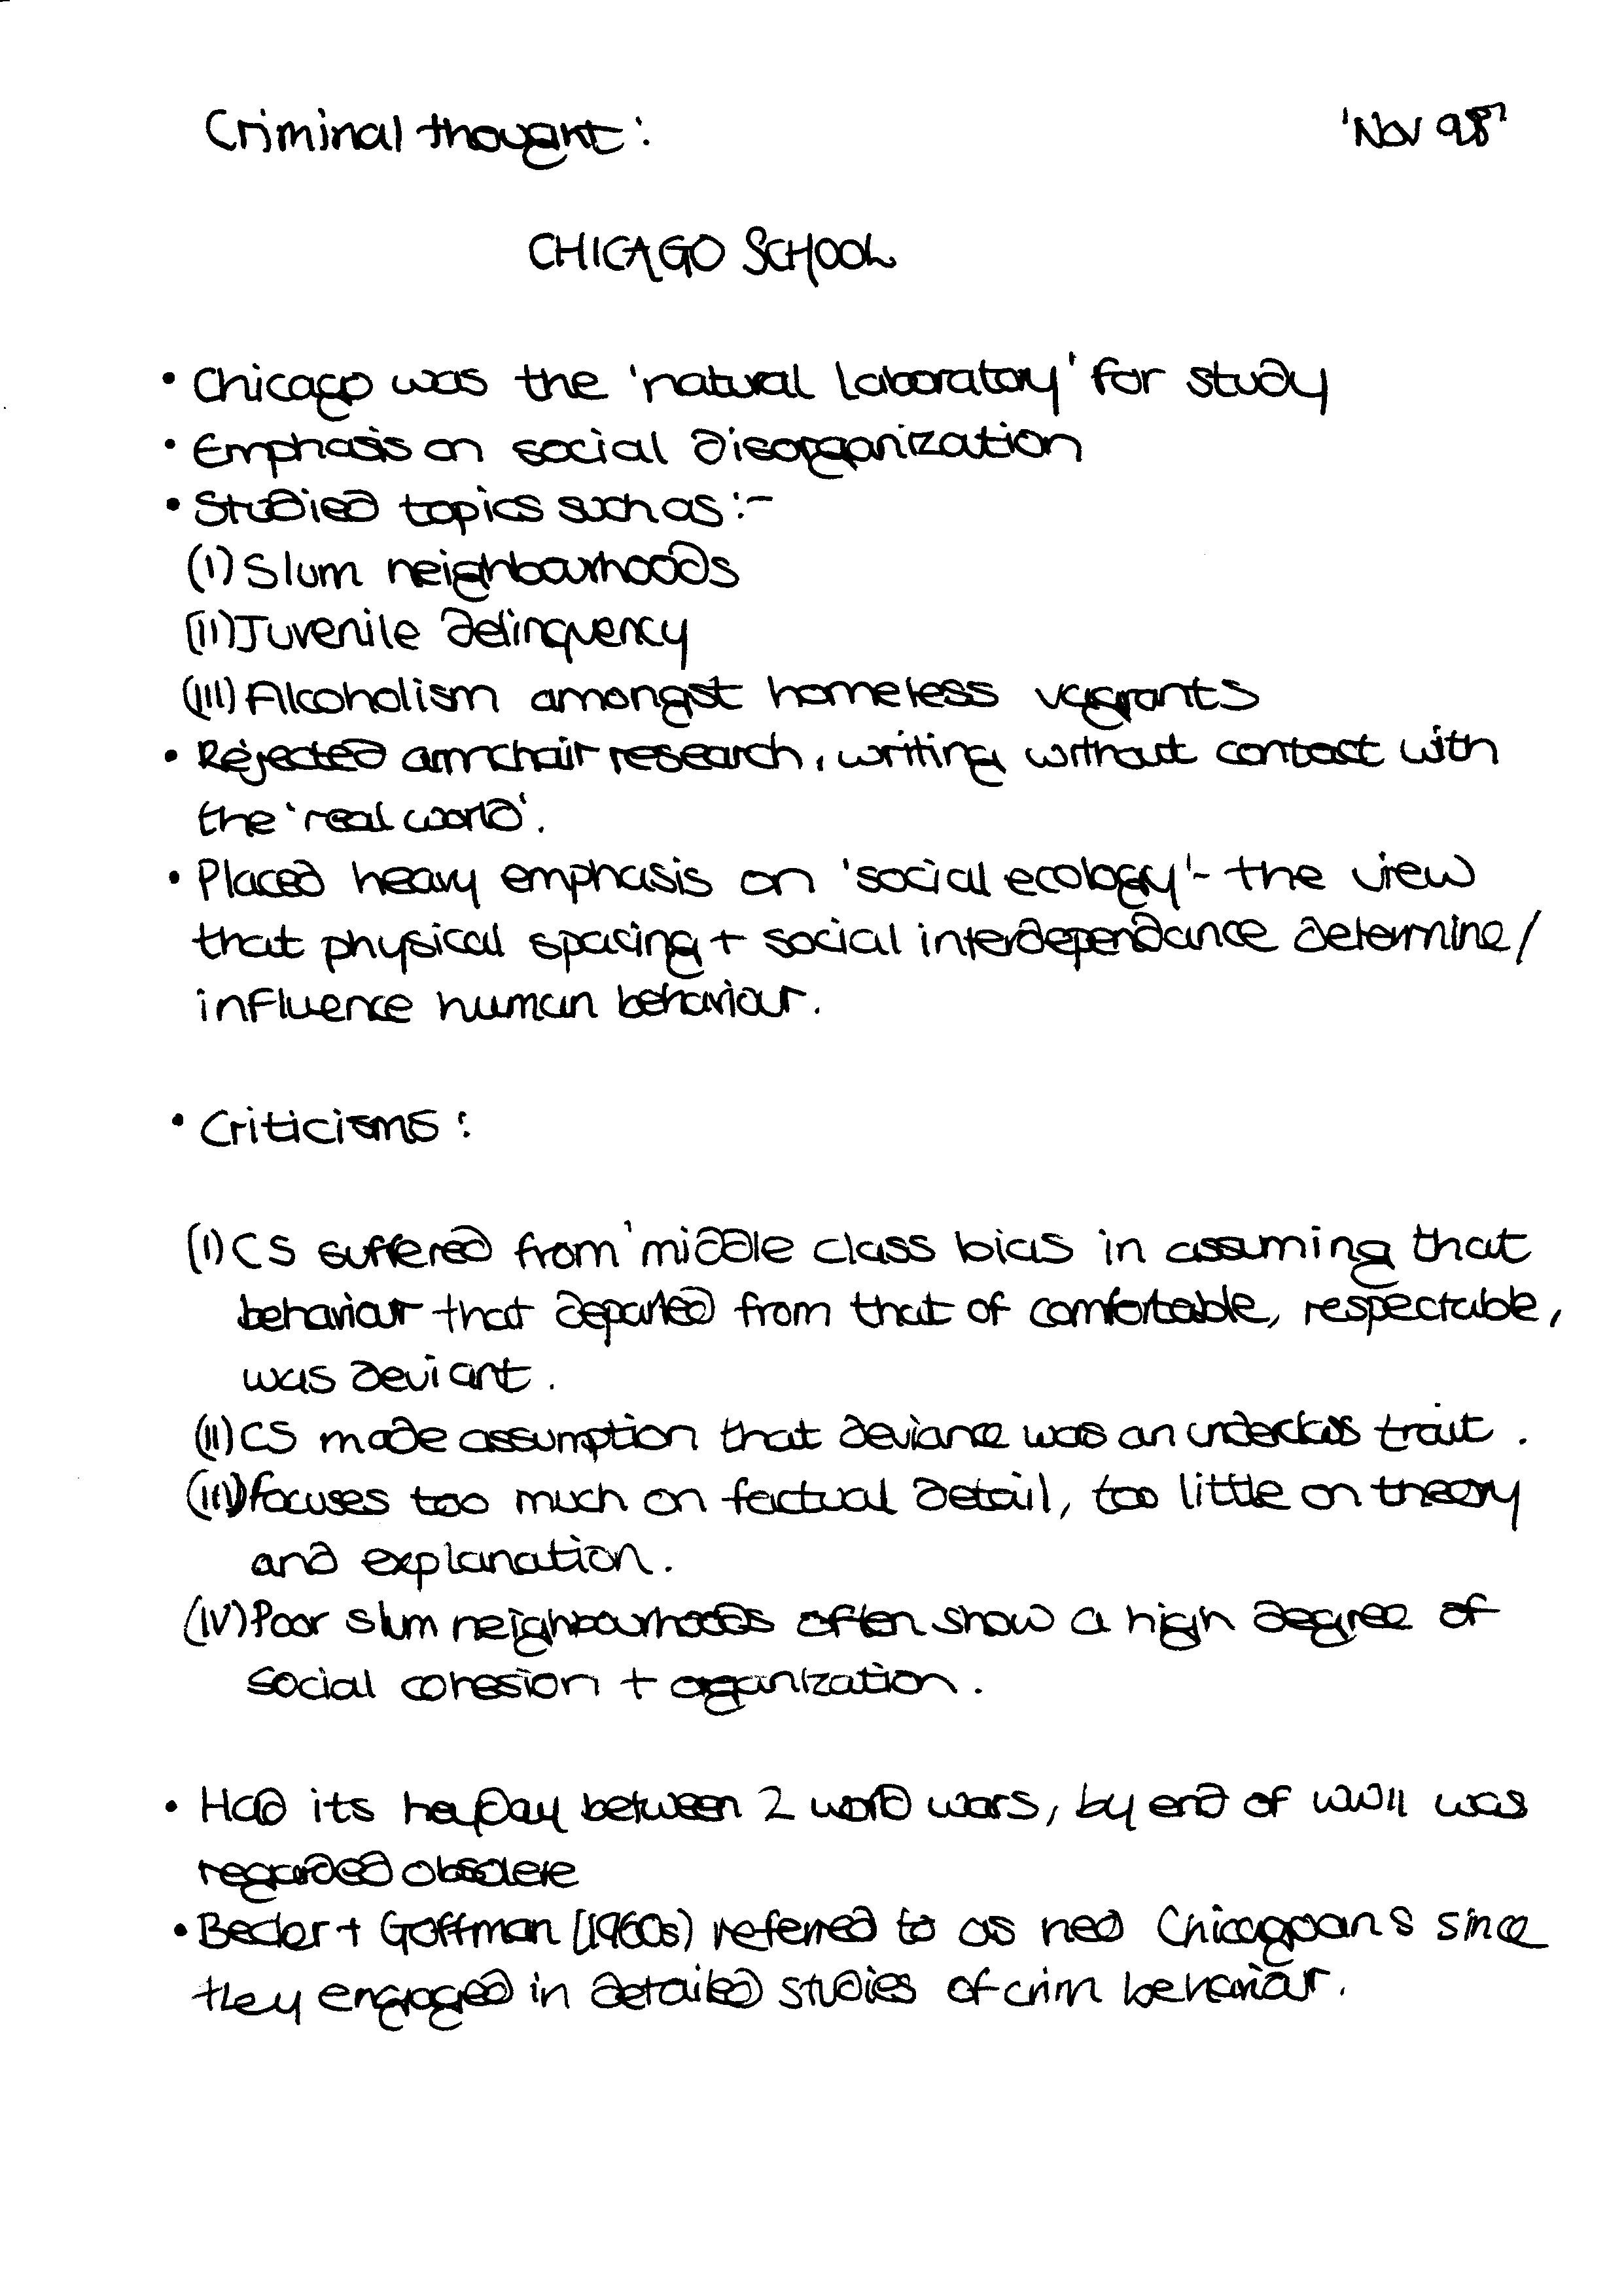 Criminal thought: 'Nov 98'
CHICAGO SCHOOL
• Chicago was the 'natural laboratory' for study
• Emphasis on social disorganization
• Studied topics such as:-
(I) Slum neighbourhoods
(II) Juvenile delinquency
(III) Alcoholism amongst homeless vagrants
• Rejected armchair research, writing without contact with
the 'real world'.
• Placed heavy emphasis on 'social ecology' - the view
that physical spacing + social interdependance determine/
influence human behaviour.
• Criticisms:
(I) CS suffered from 'middle class bias in assuming that
behaviour that departed from that of comfortable, respectable,
was deviant.
(II) CS made assumption that deviance was an underclass trait.
(III) Focuses too much on factual detail, too little on theory
and explanation.
(IV) Poor slum neighbourhoods often show a high degree of
social cohesion + organization.
• Had its heyday between 2 world wars, by end of WWII was
regarded obsolete
• Becker + Goffman (1960s) referred to as neo Chicagoans since
they engaged in detailed studies of crim behaviour.